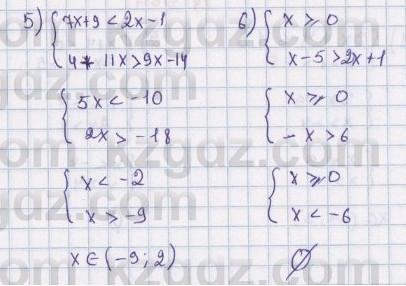 5) { 7x+9 < 2x-1
4+ 11x > 9x-14
{ 5x < -10
2x > -18
{ x < -2
x > -9
x ∈ (-9; 2)
6) { x ⩾ 0
x-5 > 2x+1
{ x ⩾ 0
-x > 6
{ x ⩾ 0
x < -6
∅